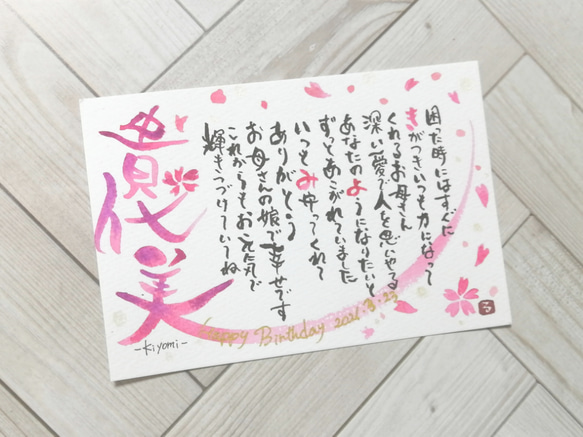 困った時にはすぐに
きがつきいつも力になって
くれるお母さん
深い愛で人を思いやる
あなたのようになりたいと
ずっとあこがれていました
いつもみ守ってくれて
ありがとう
お母さんの娘で幸せです
これからもお元気で
輝きつづけていてね
貴代美
-Kiyomi-
Happy Birthday 2021.3.23
る